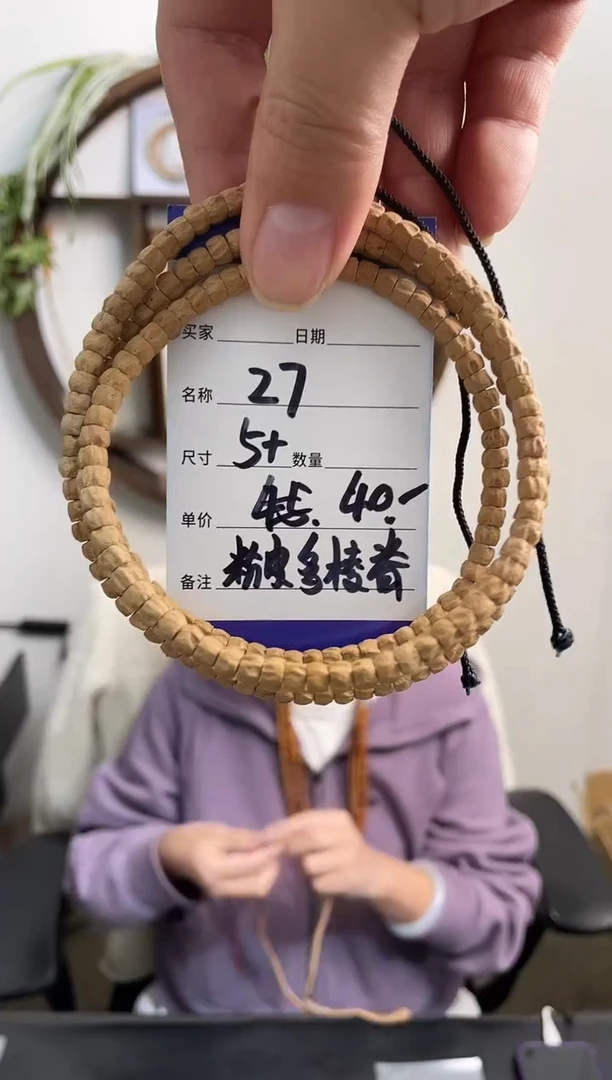 买家 日期
名称 27
尺寸 5+ 数量
单价 45. 40.-
备注 粉皮多棱脊